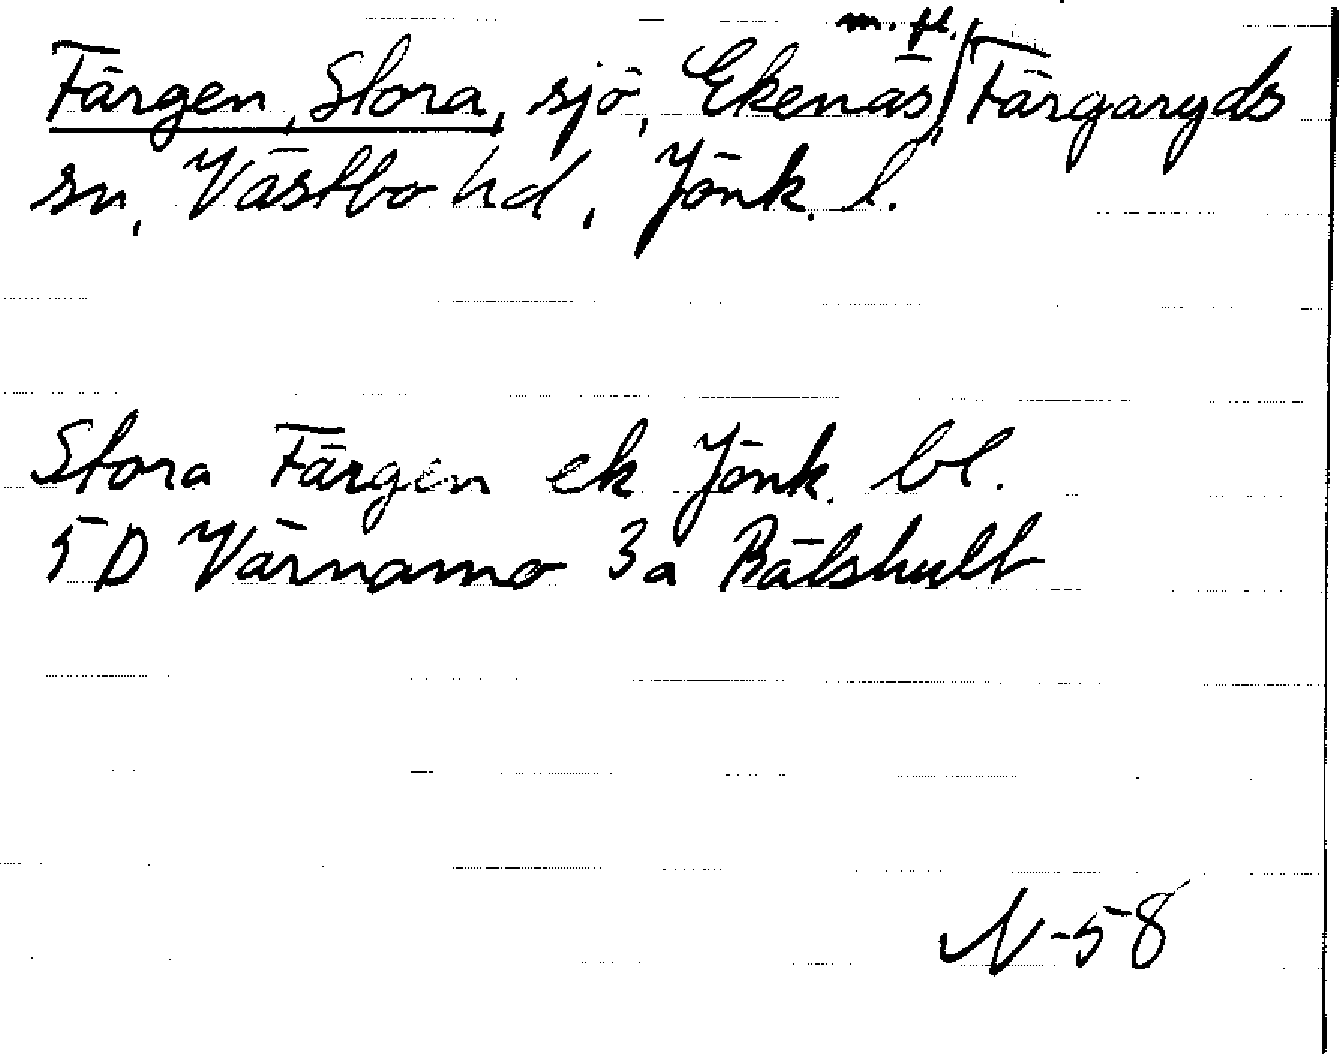 m. fl.
Färgen, Stora, sjö, Ekenäs, Färgaryds
sn, Västbo hd, Jönk. l.
Stora Färgen ek Jönk. bl.
5 D Värnamo 3a Bälshult
N-58